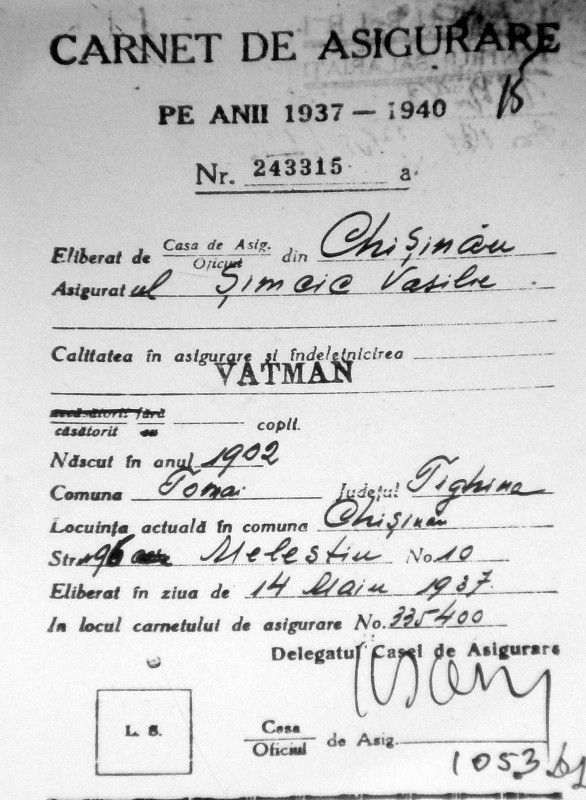 CARNET DE ASIGURARE
PE ANII 1937 — 1940
Nr. 243315 a
Eliberat de Casa de Asig. / Oficiul din Chișinău
Asiguratul Șimcic Vasilie
Calitatea în asigurare și îndeletnicirea
VATMAN
necăsătorit fără
căsătorit cu copii.
Născut în anul 1902
Comuna Tomai Județul Tighina
Locuința actuală în comuna Chișinău
Str. Melestiu No. 10
Eliberat în ziua de 14 Maiu 1937.
In locul carnetului de asigurare No. 335400
Delegatul Casei de Asigurare
L. S.
Casa / Oficiul de Asig.
1053